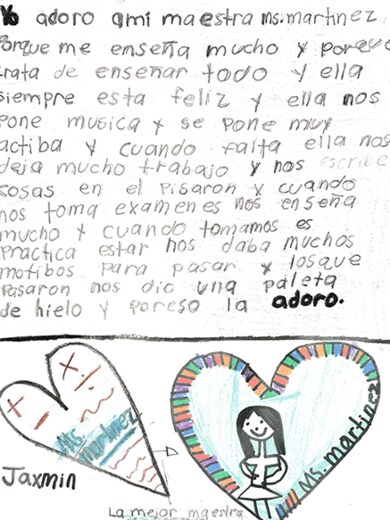 Yo adoro ami maestra ms.martinez
Porque me enseña mucho y poreso
trata de enseñar todo y ella
siempre esta feliz y ella nos
pone musica y se pone muy
actiba y cuando falta ella nos
deja mucho trabajo y nos escribe
cosas en el Pisaron y cuando
nos toma examenes nos enseña
mucho y cuando tomamos es
Practica estar nos daba muchos
motibos para pasar y losque
Pasaron nos dio una paleta
de hielo y poreso la adoro.
Ms. martinez
Ms. martinez
Jaxmin
La mejor maestra